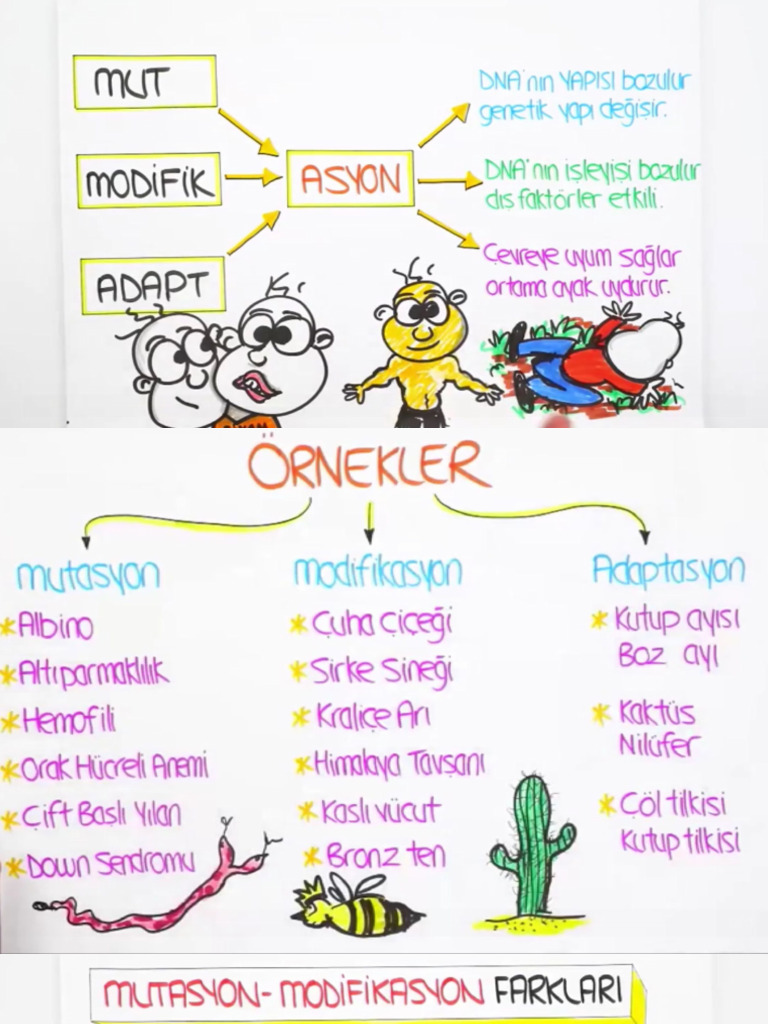 MUT
MODİFİK
ADAPT
ASYON
DNA'nın YAPISI bozulur
genetik yapı değişir.
DNA'nın işleyişi bozulur
dış faktörler etkili.
Çevreye uyum sağlar
ortama ayak uydurur.
ÖRNEKLER
mutasyon
*Albino
*Altıparmaklılık
*Hemofili
*Orak Hücreli Anemi
*Çift Başlı Yılan
*Down Sendromu
modifikasyon
*Çuha Çiçeği
*Sirke Sineği
*Kraliçe Arı
*Himalaya Tavşanı
*Kaslı vücut
*Bronz ten
Adaptasyon
*Kutup ayısı
Boz ayı
*Kaktüs
Nilüfer
*Çöl tilkisi
Kutup tilkisi
MUTASYON-MODİFİKASYON FARKLARI